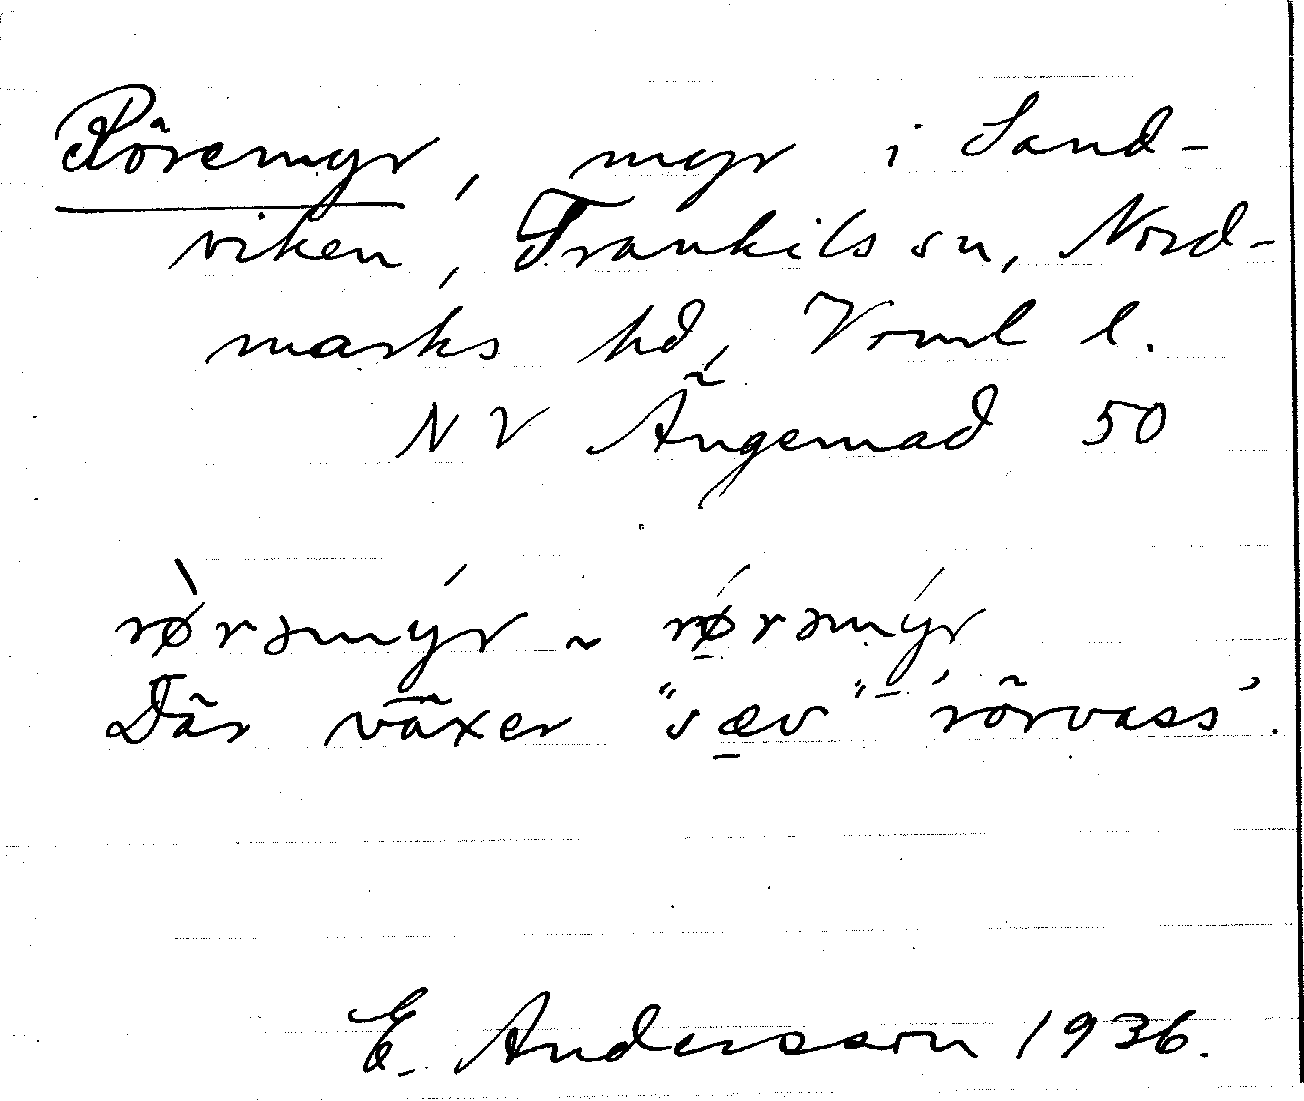 Röremyr, myr i Sand-
viken, Trankils sn, Nord-
marks hd, Vrml l.
NV Ängemad 50
rø̀rəmýr ~ rǿrəmýr
Där växer "sæv" 'rörvass'.
E. Andersson 1936.